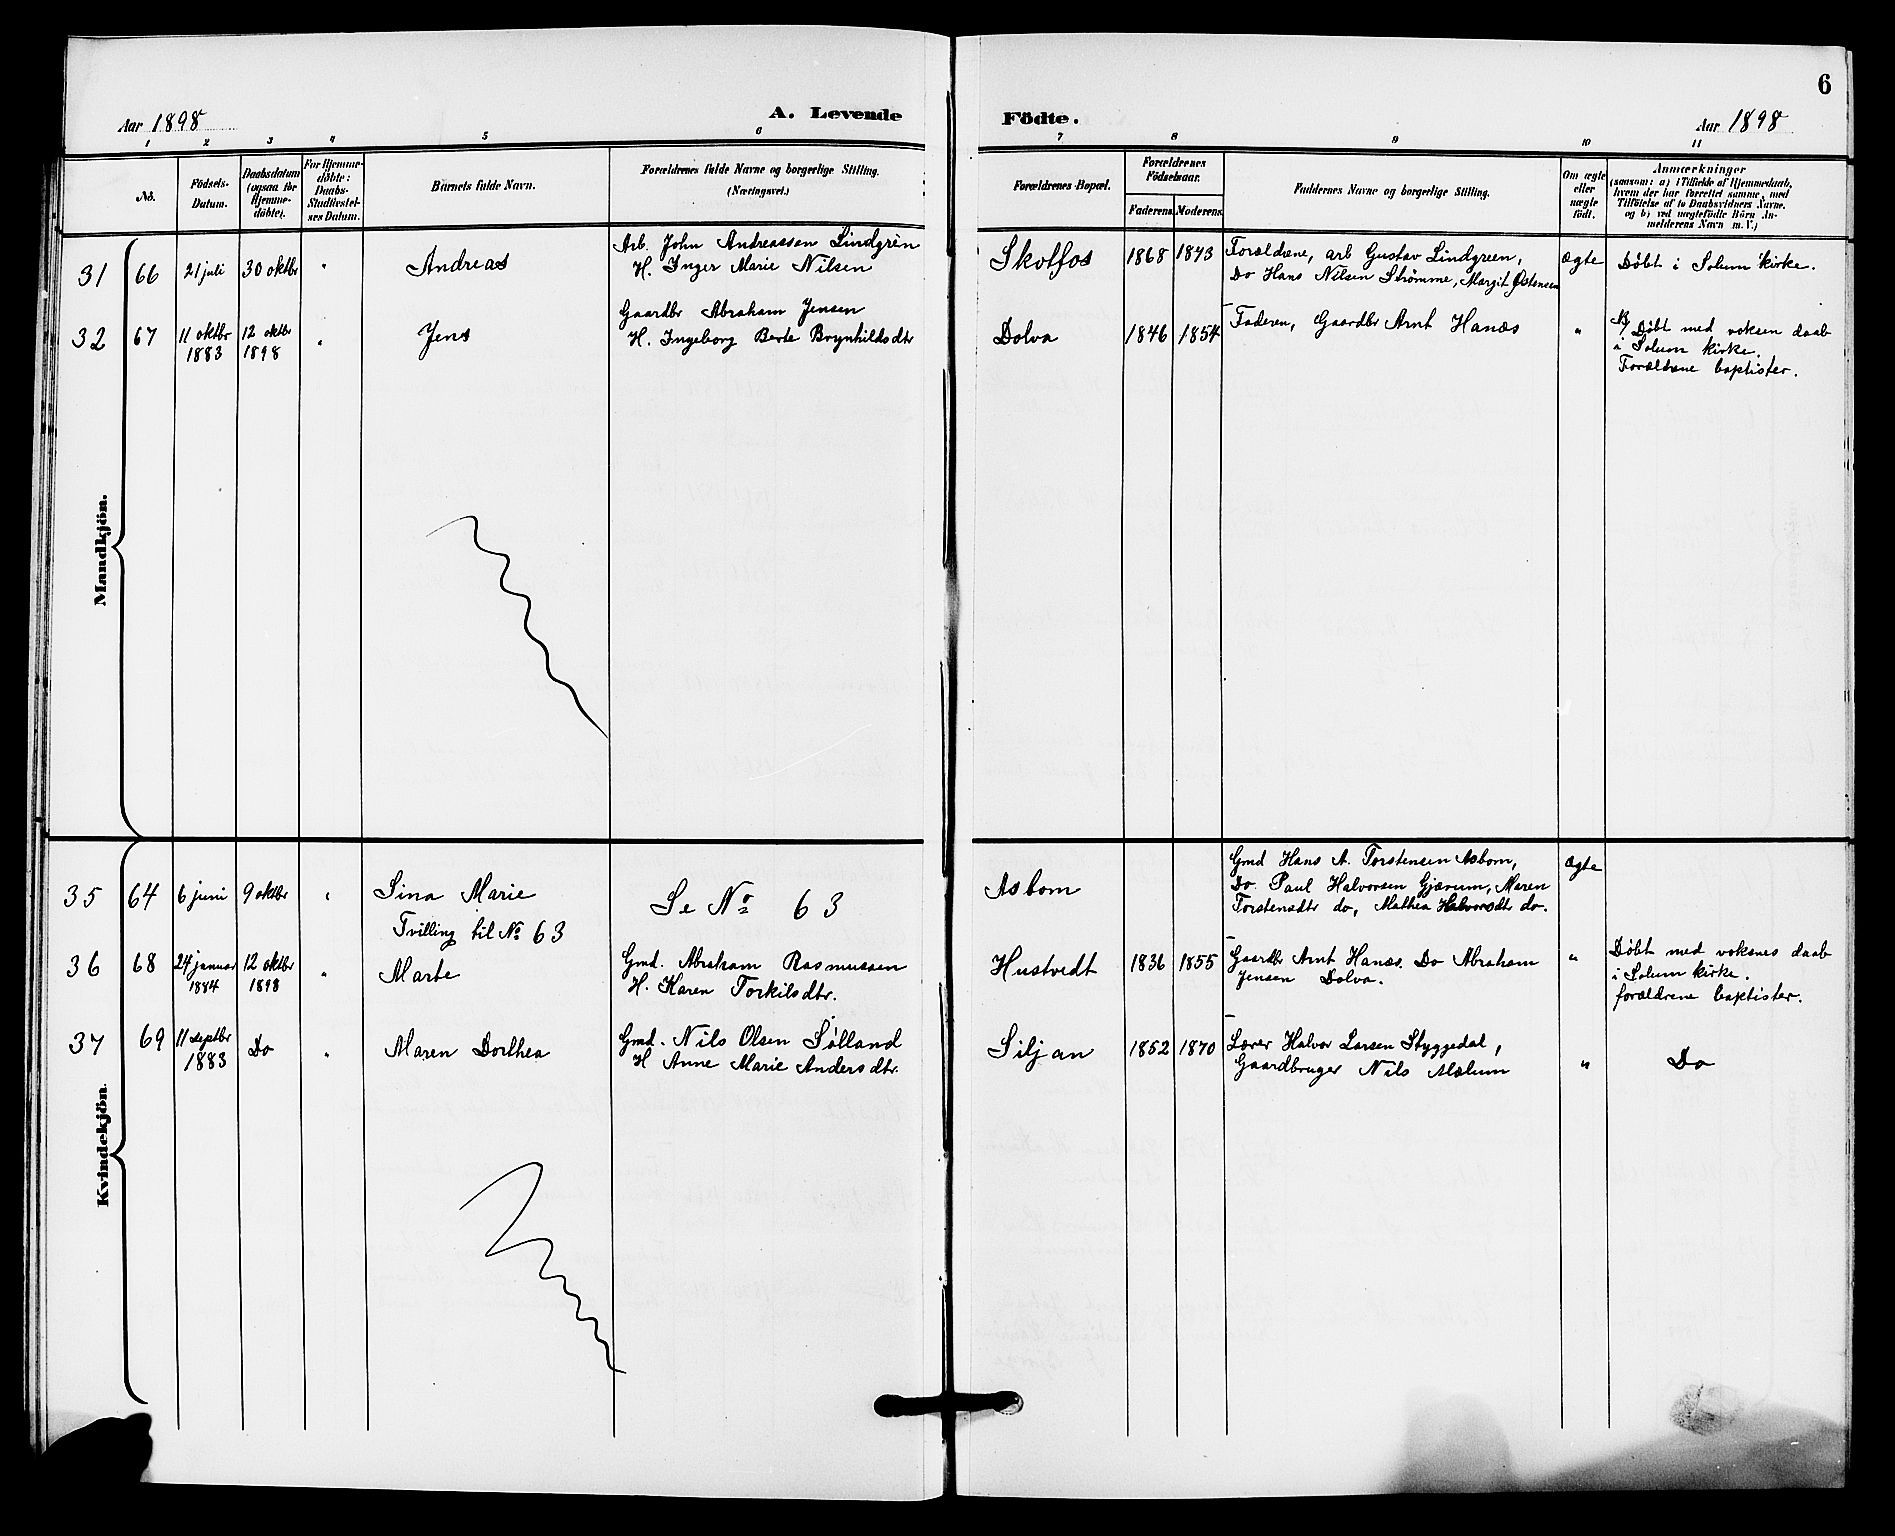 6
Aar 1898
A. Levende
Födte.
Aar 1898
1 2 3 4 5 6 7 8 9 10 11
No.
Födsels-
Datum.
Daabsdatum
(ogsaa for
Hjemme-
döbte).
For Hjemme-
döbte:
Daabs-
Stadfæstel-
ses Datum.
Barnets fulde Navn.
Forældrenes fulde Navne og borgerlige Stilling.
(Næringsvei.)
Forældrenes Bopæl.
Forældrenes
Födselsaar.
Faderens Moderens
Faddernes Navne og borgerlige Stilling.
Om ægte
eller
uægte
födt.
Anmærkninger
(saasom: a) i Tilfælde af Hjemmedaab,
hvem der har forrettet samme, med
Tilföielse af to Daabsvidners Navne.
og b) ved uægtefödte Börn An-
melderens Navn m. V.)
Mandkjön.
31 66 21 juli 30 oktbr " Andreas
Arb. John Andreassen Lindgrèn
H. Inger Marie Nilsen
Skotfos 1868 1873
Forældrene, arb Gustav Lindgreen,
Do Hans Nilsen Strömme, Margit Østensen
Ægte
Döbt i Solum kirke.
32 67 11 oktbr 1883
12 oktbr 1898
" Jens
Gaardbr Abraham Jensen
H. Ingeborg Berte Brynhildsdtr
Dolva 1846 1854
Faderen, Gaardbr Arnt Hanæs
"
Döbt med voksen daab
i Solum kirke.
Forældrene baptister.
Kvindekjön.
35 64 6 juni 9 oktbr " Sina Marie
Tvilling til No 63
Se No 63
Asbom
Gmd Hans A. Torstensen Asbom,
Do. Paul Halvorsen Gjærum, Maren
Torstensdtr do, Mathea Halvorsdtr do.
Ægte
36 68 24 januar 1884
12 oktbr 1898
" Marte
Gmd. Abraham Rasmussen
H. Karen Torkilsdtr.
Hustvedt 1836 1855
Gaardbr Arnt Hanæs. Do Abraham
Jensen Dolva.
"
Döbt med voksnes daab
i Solum kirke.
forældrene baptister.
37 69 11 septbr 1883
Do " Maren Dorthea
Gmd. Nils Olsen Sölland
H Anne Marie Andersdtr.
Siljan 1852 1870
Lærer Halvor Larsen Styggedal,
Gaardbruger Nils Mælum
" Do